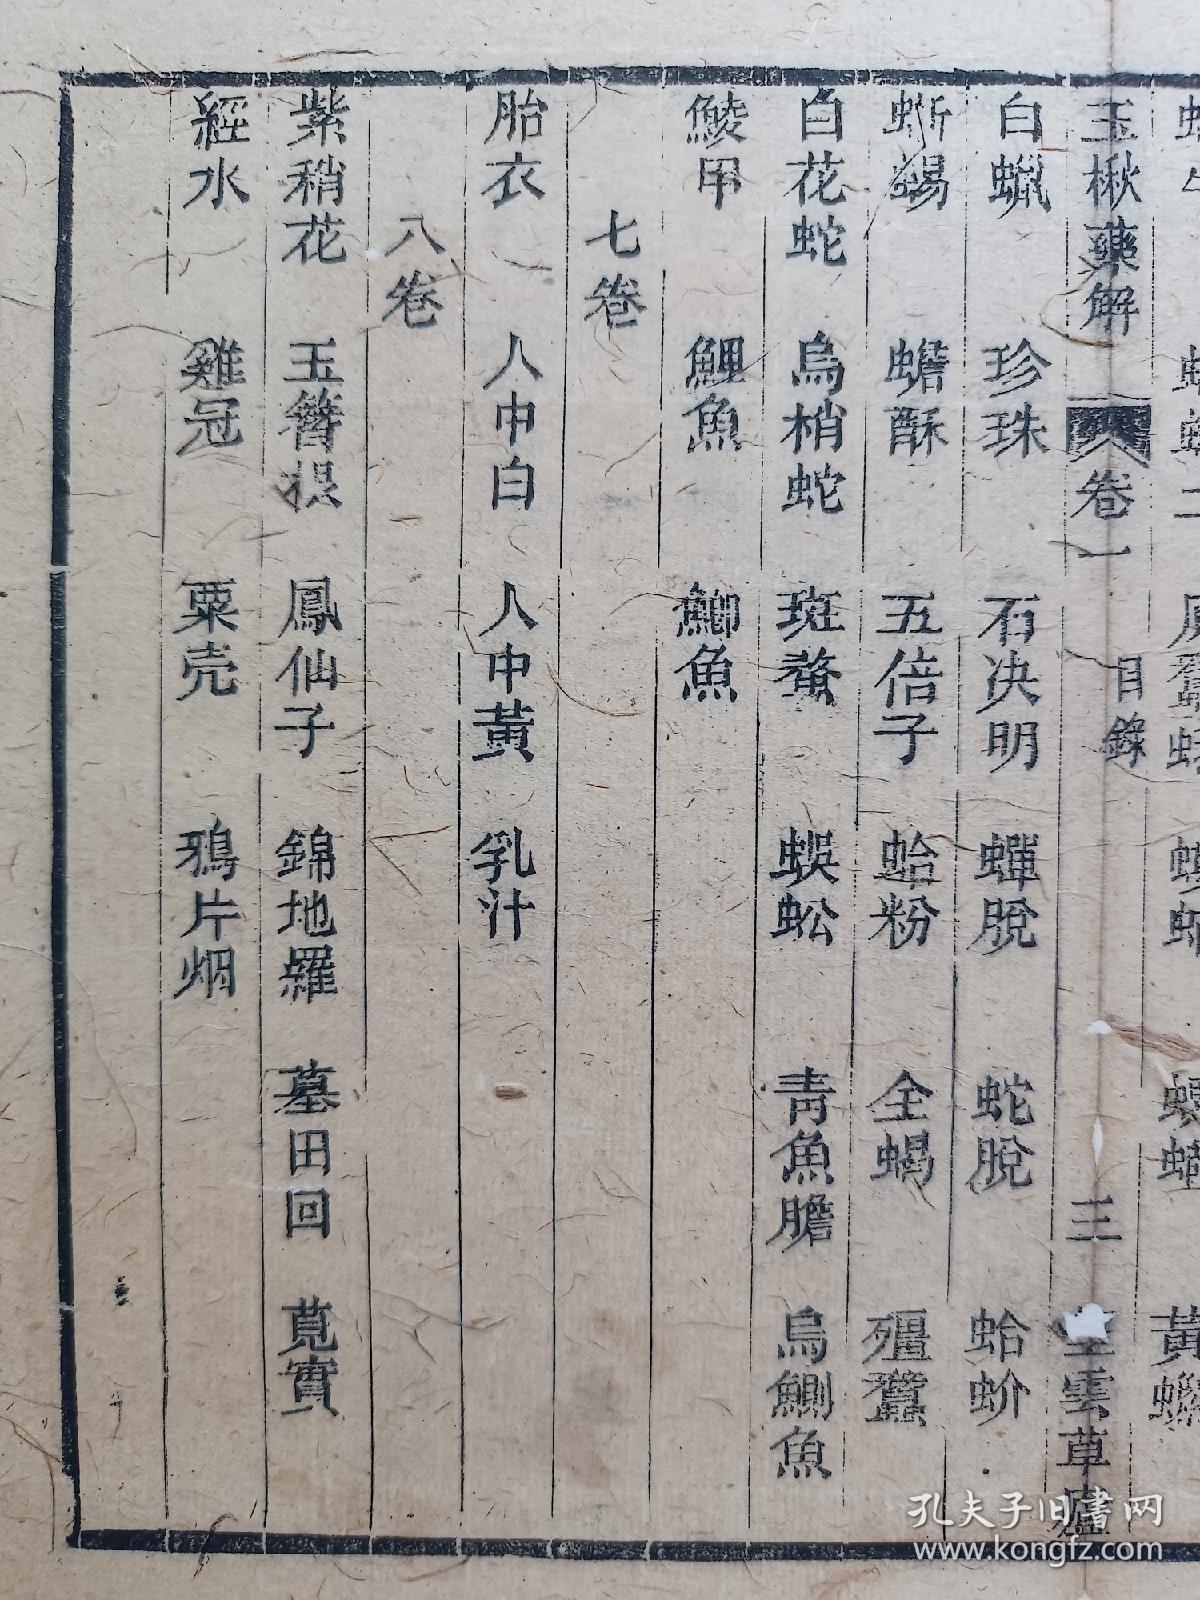 黃
玉楸藥解 卷一 目錄 三 雲草廬
白蠟 珍珠 石決明 蟬脫 蛇脫 蛤蚧
蜥蜴 蟾酥 五倍子 蛤粉 全蝎 殭蠶
白花蛇 烏梢蛇 斑蝥 蜈蚣 青魚膽 烏鰂魚
鯪甲 鯉魚 鯽魚
七卷
胎衣 人中白 人中黃 乳汁
八卷
紫稍花 玉簪根 鳳仙子 錦地羅 墓田回 莧實
經水 雞冠 粟壳 鴉片烟
孔夫子旧书网
www.kongfz.com